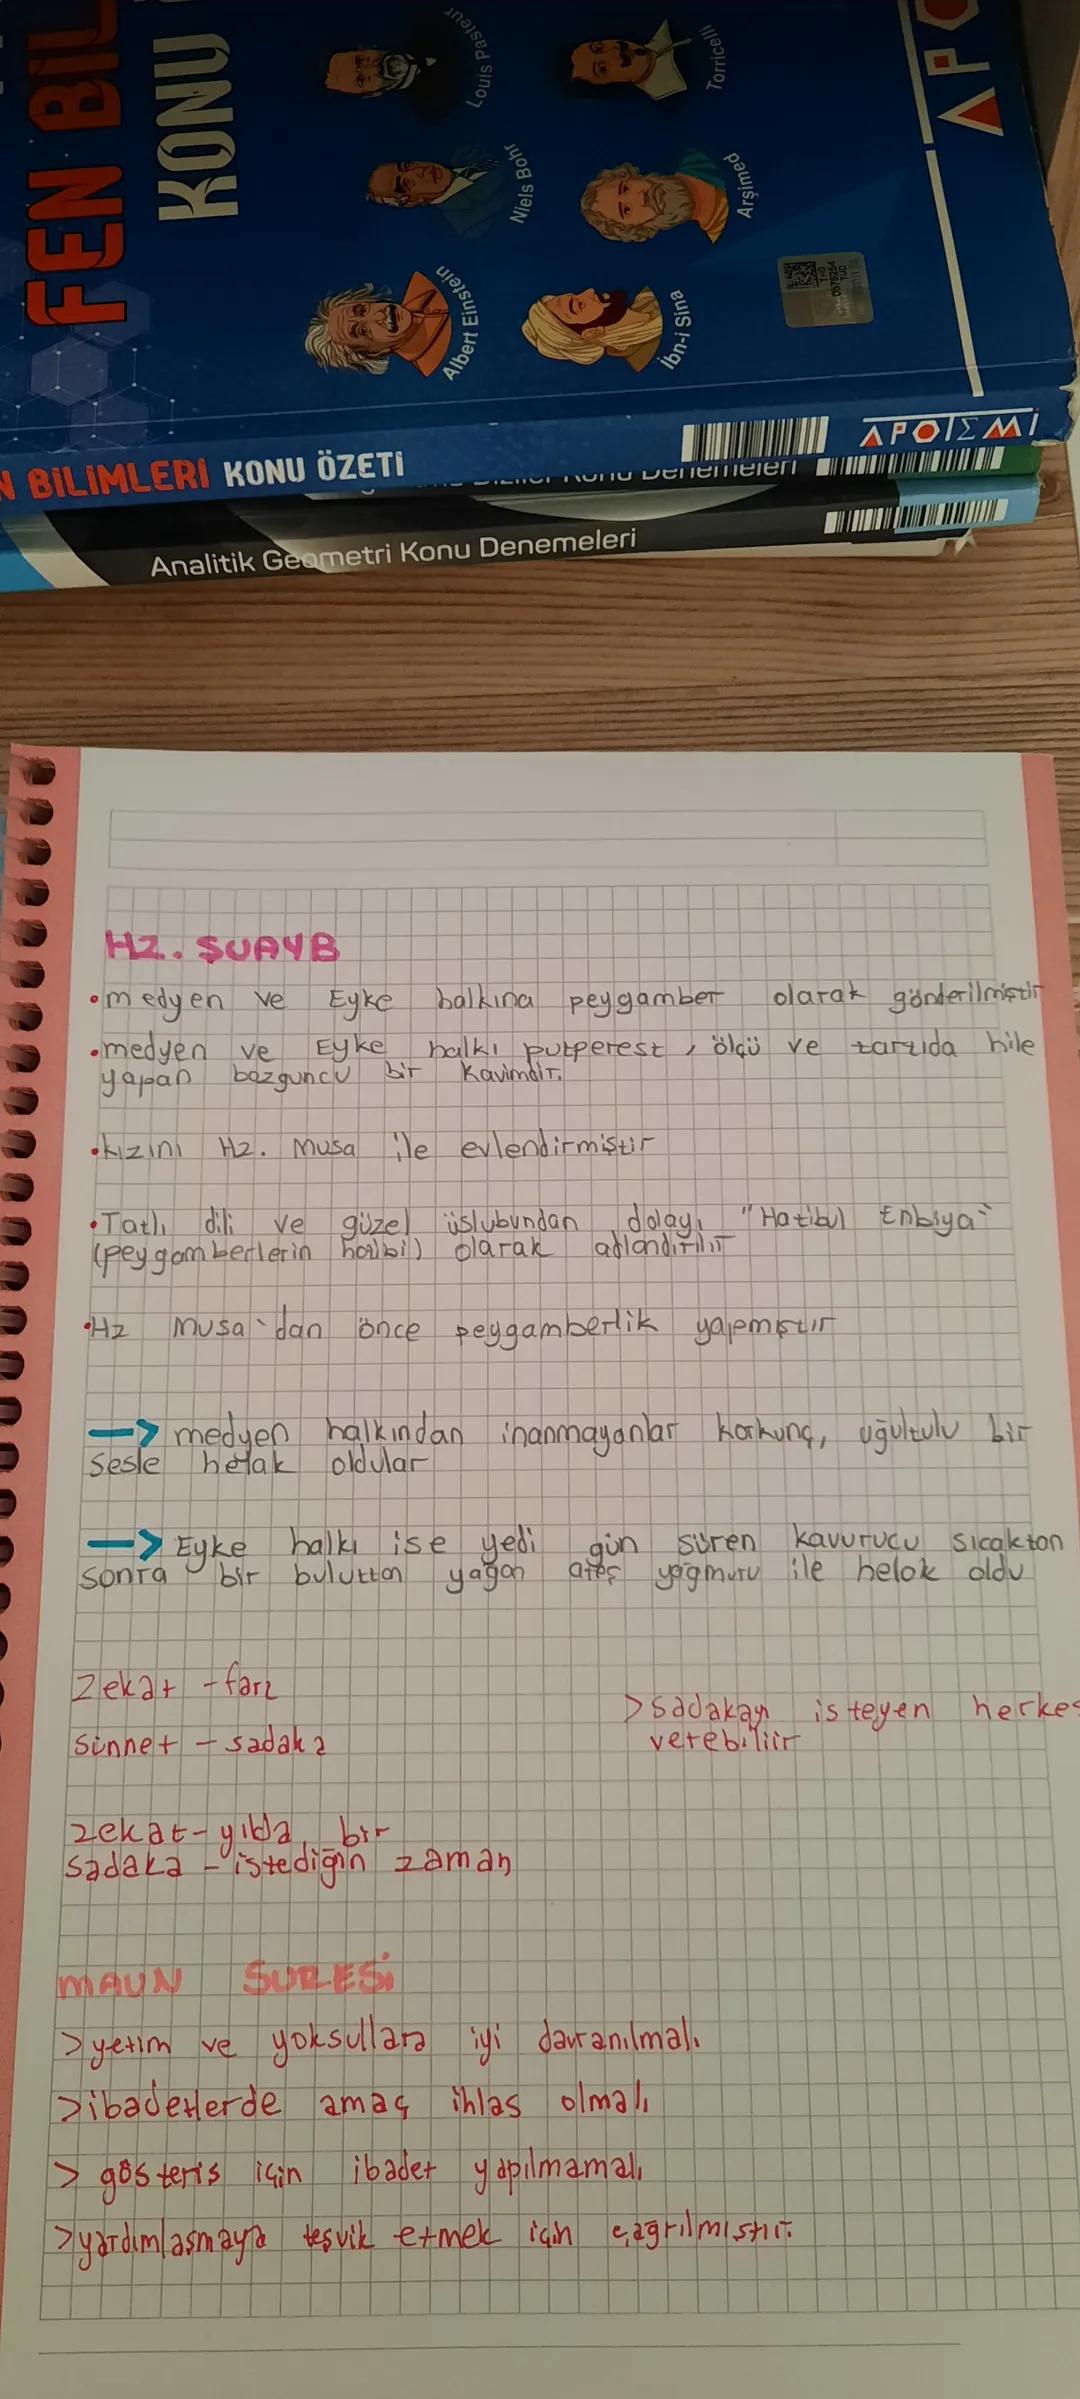 FEN BİL
KONU
Louis Pasteur
Torricelli
Niels Bohr
Arşimed
Albert Einstein
İbn-i Sina
APO
N BİLİMLERİ KONU ÖZETİ
APOTEMİ
Konu Denemeleri
Analitik Geometri Konu Denemeleri
HZ. ŞUAYB
•medyen ve Eyke halkına peygamber olarak gönderilmiştir
•medyen ve Eyke halkı putperest, ölçü ve tartıda hile
yapan bozguncu bir kavimdir.
•kızını Hz. Musa ile evlendirmiştir
•Tatlı dili ve güzel üslubundan dolayı "Hatibul Enbiya"
(peygamberlerin hatibi) olarak adlandırılır
•Hz Musa'dan önce peygamberlik yapmıştır
→ medyen halkından inanmayanlar korkunç, uğultulu bir
sesle helak oldular
→ Eyke halkı ise yedi gün süren kavurucu sıcaktan
sonra bir buluttan yağan ateş yağmuru ile helak oldu
Zekat - farz
>sadakayı isteyen herkes
sünnet - sadaka
verebiliir
zekat- yılda bir
sadaka - istediğin zaman
MAUN SURESİ
>yetim ve yoksullara iyi davranılmalı
>ibadetlerde amaç ihlas olmalı
> gösteris için ibadet yapılmamalı
>yardımlaşmaya teşvik etmek için çağrılmıstır.